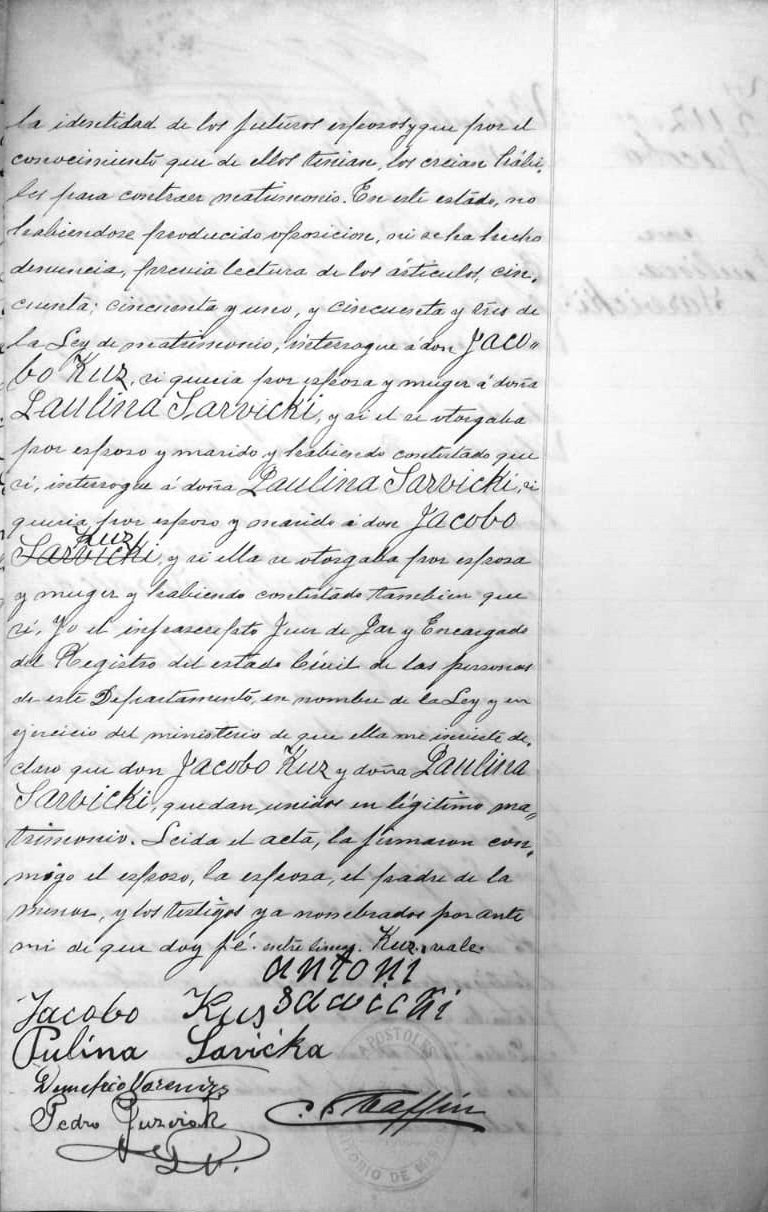 la identidad de los futuros esposos y que por el
conocimiento que de ellos tenian, los creian hábi-
les para contraer matrimonio. En este estado, no
habiendose producido oposicion, ni se ha hecho
denuncia, previa lectura de los árticulos, cin-
cuenta; cincuenta y uno, y cincuenta y tres de
la Ley de matrimonio, interrogue á don Jaco-
bo Kuz, si queria por esposa y muger á doña
Paulina Sarvicki, y si el se otorgaba
por esposo y marido y habiendo contestado que
si, interrogue á doña Paulina Sarvicki, si
queria por esposo y marido á don Jacobo
Kuz
Sarvicki, y si ella se otorgaba por esposa
y muger y habiendo contestado tambien que
si, Yo el infrascripto Juez de Paz y Encargado
del Registro del estado Civil de las personas
de este Departamento, en nombre de la Ley y en
ejercicio del ministerio de que ella me inviste de-
claro que don Jacobo Kuz y doña Paulina
Sarvicki, quedan unidos en légitimo ma-
trimonio. Leida el acta, la firmaron con-
migo el esposo, la esposa, el padre de la
menor, y los testigos ya nombrados por ante
mi de que doy fé. entre lineas. Kuz. vale.
antoni
Jacobo Kus Sawicki
Pulina Savicka
Pedro
APOSTOLES